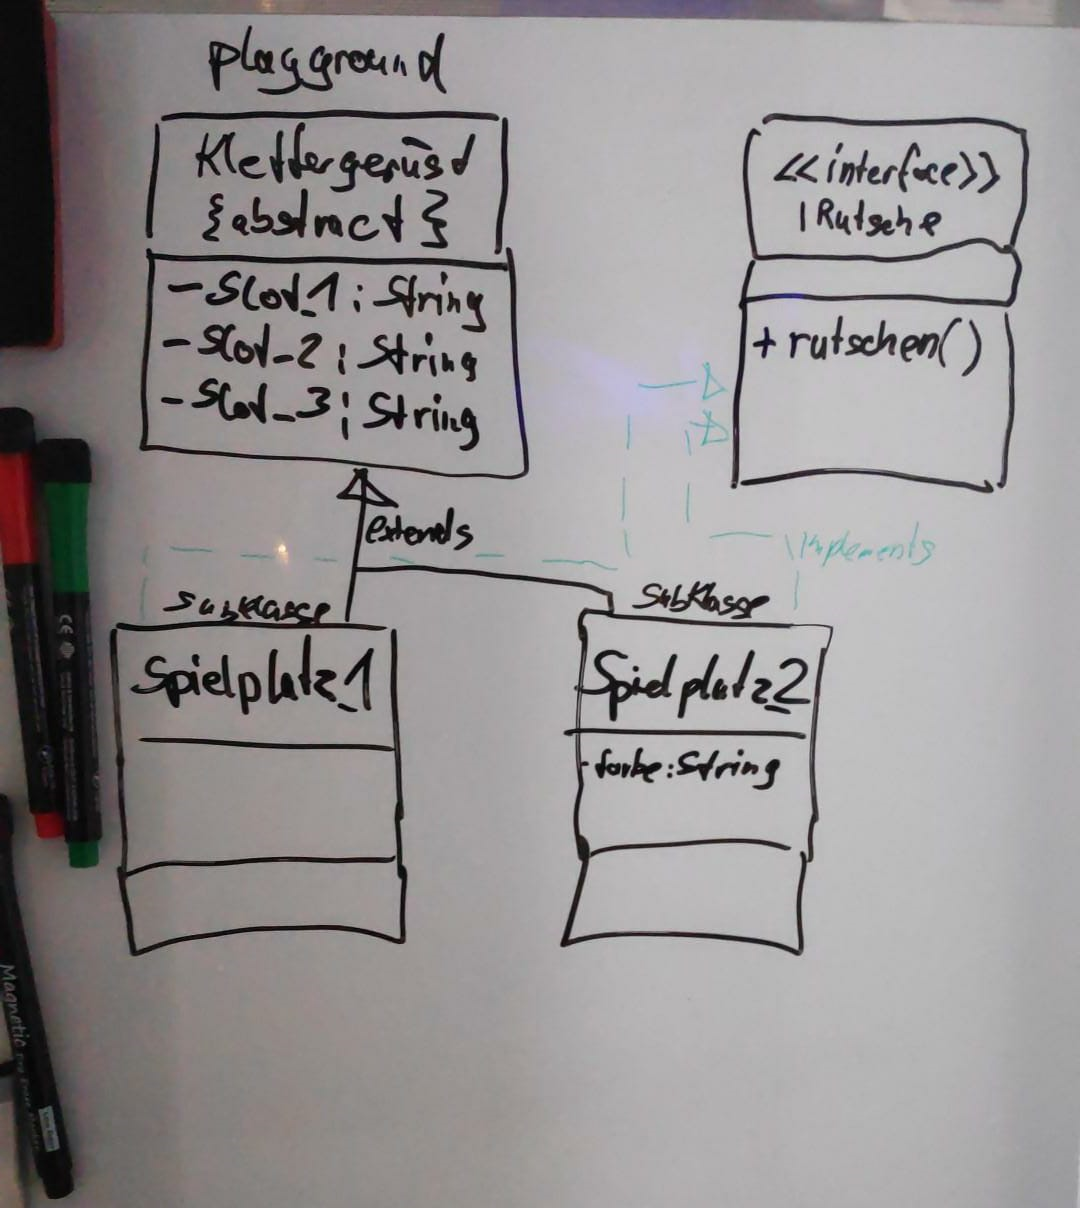 playground
Klettergerüsd
{abstract}
- Slot_1 : String
- Slot_2 : String
- Slot_3 : String
<<interface>>
IRutsche
+ rutschen()
extends
implements
Subklasse
Spielplatz_1
Subklasse
Spielplatz_2
- farbe : String
Magnetic